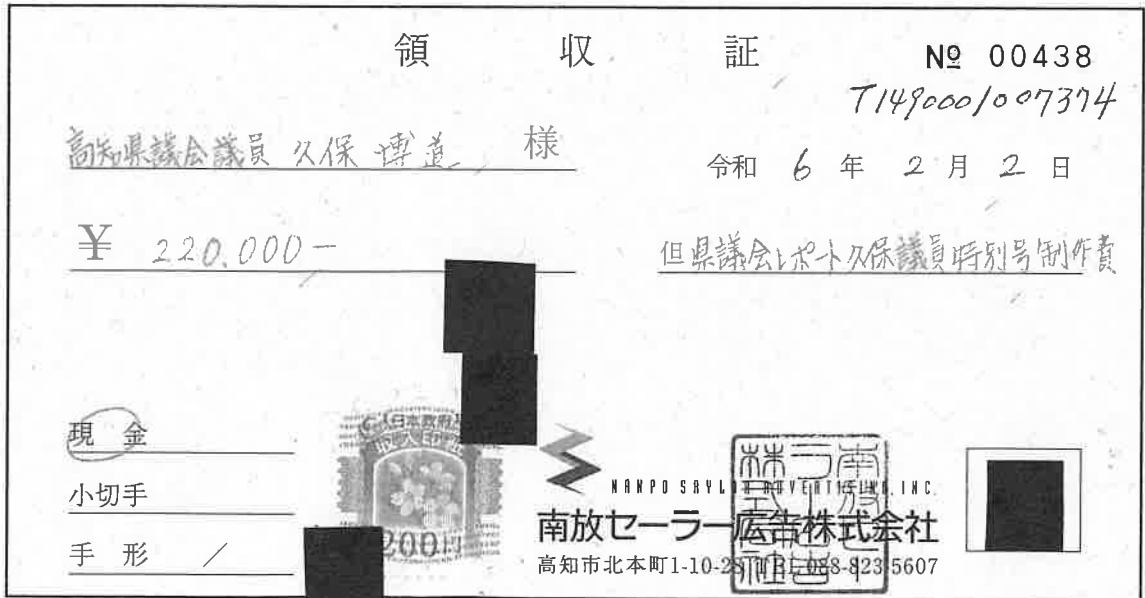 領収証
№ 00438
T1490001007374
高知県議会議員 久保 博道 様
令和 6 年 2 月 2 日
¥ 220.000-
但県議会レポート久保議員特別号制作費
現金
日本政府
収入印紙
200円
小切手
手形 /
NANPO SAYLOR ADVERTISING.INC.
南放セーラー広告株式会社
高知市北本町1-10-28 TEL 088-823-5607